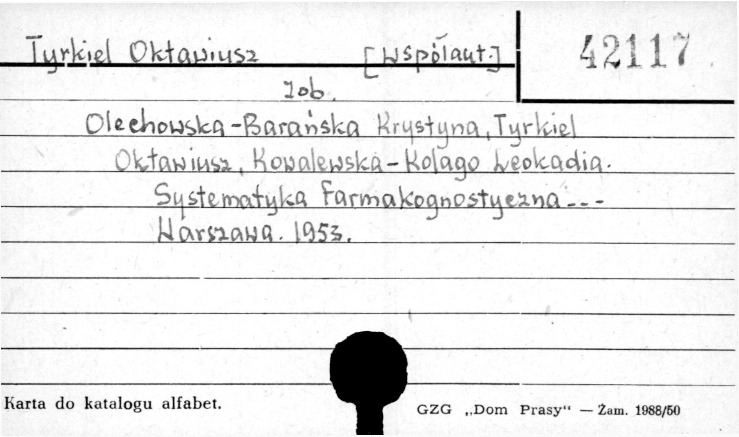 Tyrkiel Oktawiusz [Współaut.] 42117
zob.
Olechowska-Barańska Krystyna, Tyrkiel
Oktawiusz, Kowalewska-Kolago Leokadia.
Systematyka farmakognostyczna---
Warszawa. 1953.
Karta do katalogu alfabet.
GZG „Dom Prasy“ — Żam. 1988/50